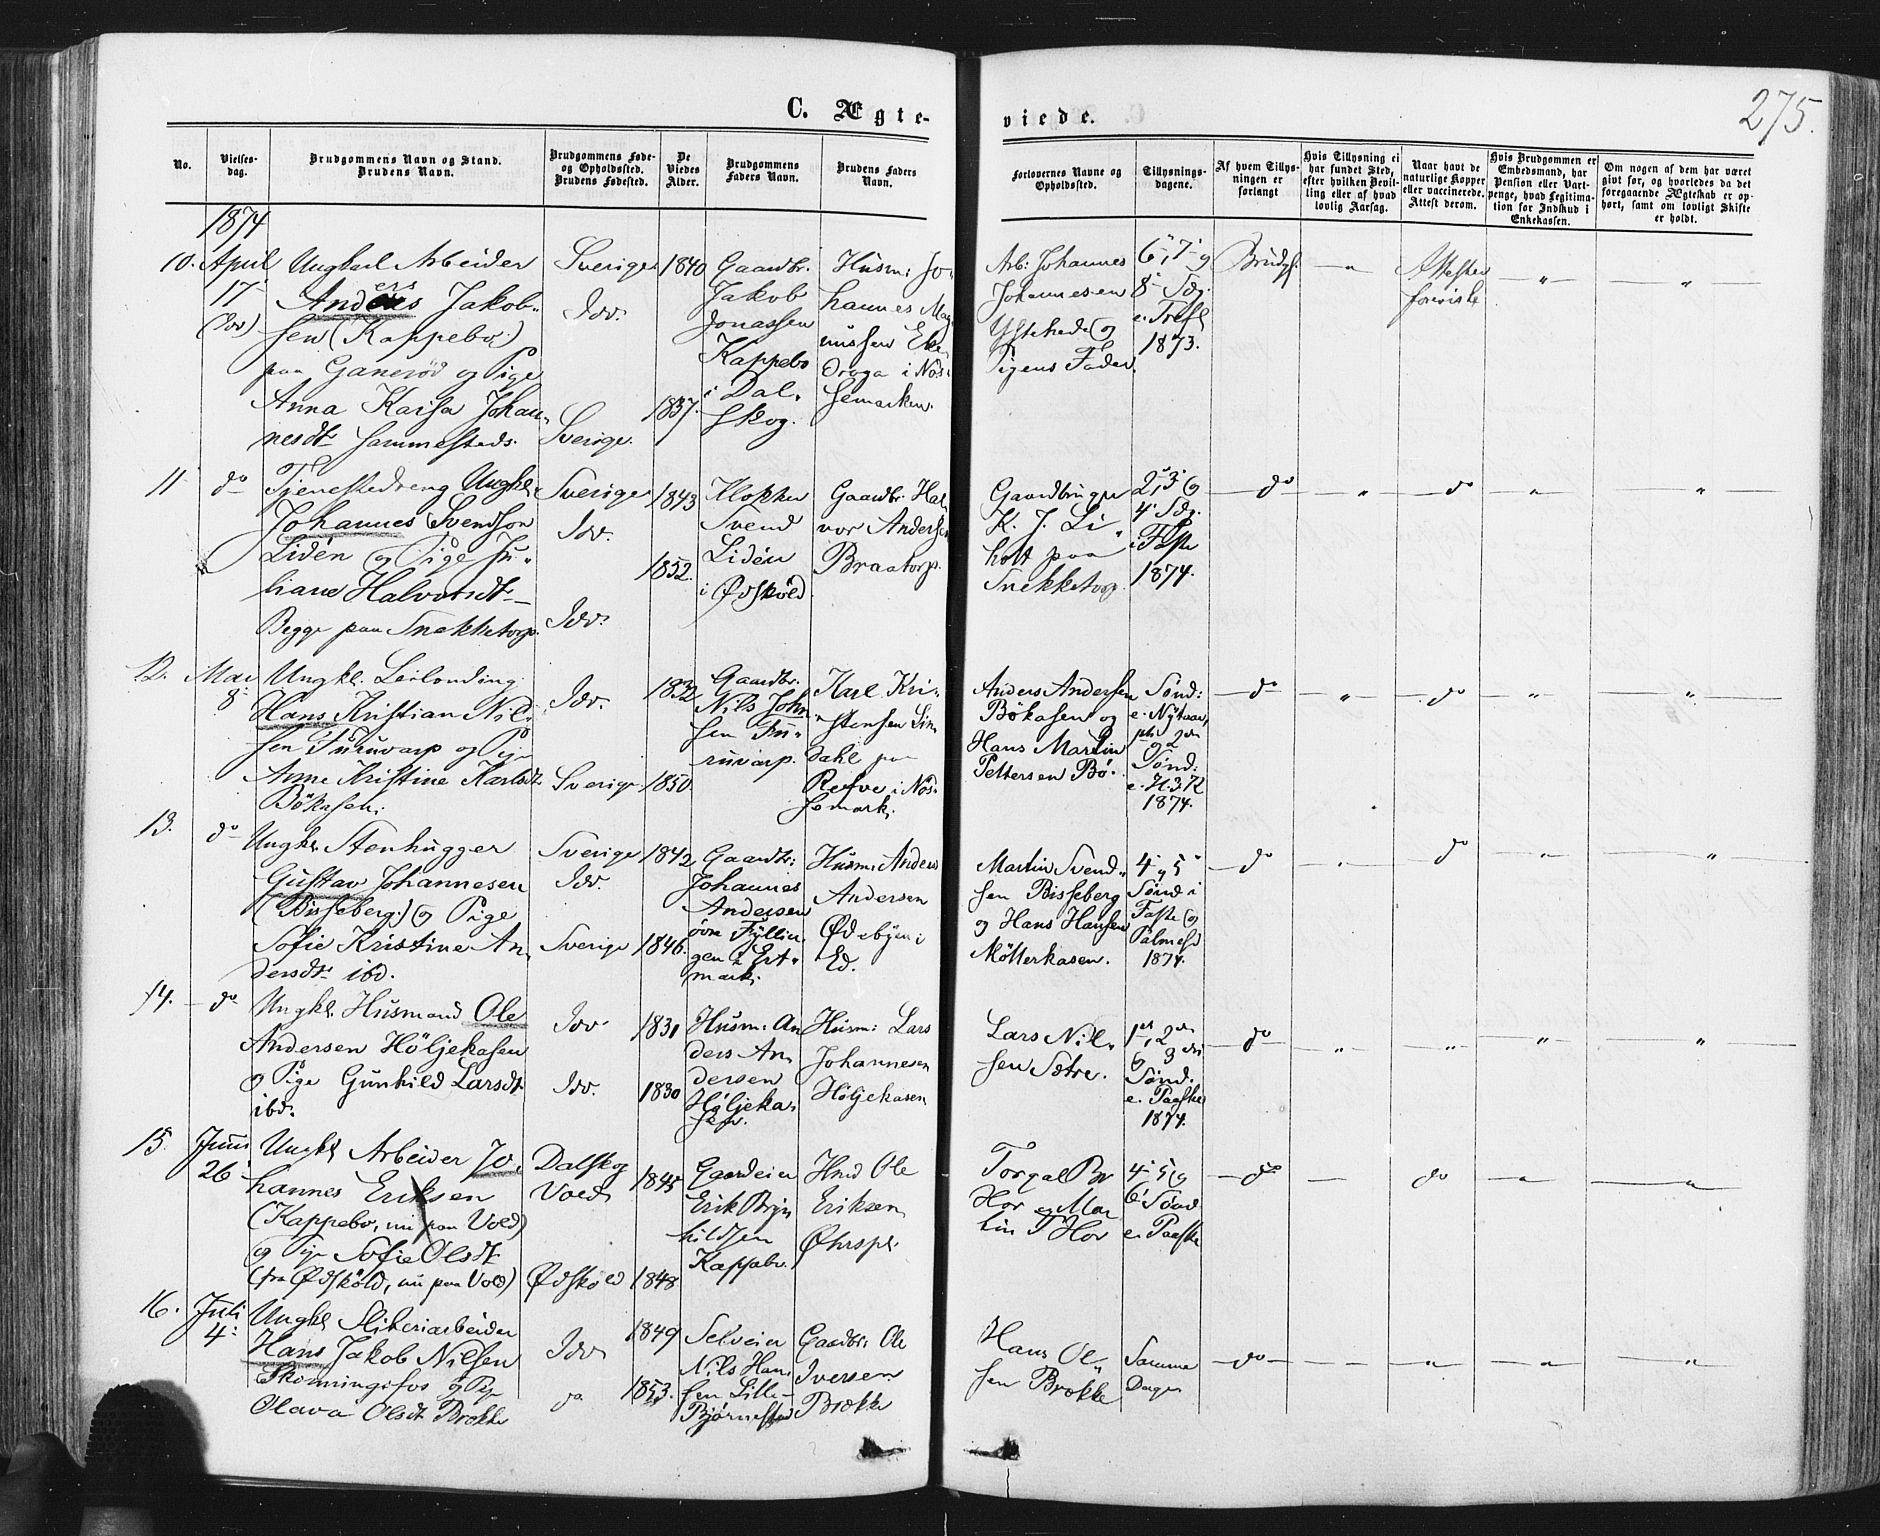 C. Ægte-
viede.
275.
No.
Vielses-
dag.
Brudgommens Navn og Stand.
Brudens Navn.
Brudgommens Føde-
og Opholdssted.
Brudens Fødested.
De
Viedes
Alder.
Brudgommens
Faders Navn.
Brudens Faders
Navn.
Forlovernes Navne og
Opholdssted.
Tillysnings-
dagene.
Af hvem Tillys-
ningen er
forlangt
Hvis Tillysning ei
har fundet Sted,
efter hvilken Bevil-
ling eller af hvad
lovlig Aarsag.
Naar havt de
naturlige Kopper
eller vaccinerede.
Attest derom.
Hvis Brudgommen er
Embedsmand, har
Pension eller Vart-
penge, hvad Legitima-
tion for Indskud i
Enkekassen.
Om nogen af dem har været
givt før, og hvorledes da det
foregaaende Ægteskab er op-
hørt, samt om lovligt Skifte
er holdt.
1874
10.
April
17
(Idd)
Ungkarl Arbeider
Anders Jakob-
sen (Kappebo)
paa Ganerød og Pige
Anna Kaisa Johan-
nesdt. sammesteds.
Sverige
Idd.
Sverige.
1840
1837.
Gaardbr.
Jakob
Jonassen
Kappebo
i Dal-
skog.
Husm: Jo-
hannes Mag-
nussen Eke
Droga i Nös-
semarken.
Arb: Johannes
Johannesen
Ystehede og
Pigens Fader.
6, 7 og
8 Sdg.
e. Tref.
1873.
Brudg.
"
Attester
foreviste
"
"
11
do
Tjenestedreng Ungkl.
Johannes Svendsen
Lidén og Pige Ju-
liane Halvorsdt.
Begge paa Snekketorp.
Sverige
Idd.
Idd.
1843
1852.
Klokker
Svend
Lidén
i Ødskøld
Gaardbr. Hal-
vor Andersen
Braatorp.
Gaardbruger
K. J. Li
holt paa
Snekketorp.
2, 3 og
4 Sdg.
i Faste
1874.
do
"
do
"
"
12.
Mai
8
Ungkl. Leilending
Hans Kristian Nil-
sen Furuvarp og Pige
Anne Kristine Karlsdt.
Bökasen.
Idd.
Sverige
1832
1850.
Gaardbr.
Nils John-
sen Fu-
ruvarp.
Karl Kri-
stensen Lin-
dahl paa
Refve i Nös-
semark.
Anders Andersen
Bökasen og
Hans Martin
Pettersen Bö.
Sönd:
e. Nytaar,
og 2den
Sönd:
e. H. 3 K
1874.
do
"
do
"
"
13.
do
Ungkl. Stenhugger
Gustav Johannesen
(Bisseberg) og Pige
Sofie Kristine An-
dersdt. ibd.
Sverige
Idd.
Sverige
1842
1846.
Gaardbr:
Johannes
Andersen
övre Fyllin-
gen i Ert-
mark.
Husm: Anders
Andersen
Ødebyen i
Ed.
Martin Svend-
sen Bisseberg
og Hans Hansen
Mötterkasen.
4 og 5
Sönd i
Faste og
Palmesd
1874.
do
"
do
"
"
14.
do
Ungkl. Husmand Ole
Andersen Höljekasen
og Pige Gunhild Larsdt.
ibd.
Idd
Idd.
1831
1830
Husm: An
ders An
dersen
Höljeka-
sen.
Husm: Lars
Johannesen
Höljekasen
Lars Nil-
sen Sætre.
1ste, 2den
og 3die
Sönd.
e. Paaske
1874.
do
"
"
"
"
15.
Juni
26
Ungkl Arbeider Jo-
hannes Eriksen
(Kappebo, nu paa Vold)
og Pige Sofie Olsdt.
(fra Ødsköld, nu paa Vold)
Dalskog
Vold
Ødsköld
1845
1848
Gaardeier
Erik Bryn
hildsen
Kappebo.
Hmd Ole
Eriksen
Torgal Br
Hov og Mar
tin T Hov
4 5 og
6 Sönd
e. Paaske
do
do
"
"
16.
Juli
4
Ungkl Sliberiarbeider
Hans Jakob Nilsen
Skonningsfos og Pige
Olava Olsdt Brække
Idd
do
1849
1853.
Selveier
Nils Han-
sen Lille-
Björnestad
Gaardbr: Ole
Iversen
Brække
Hans Ol-
sen Brække
Samme
Dage
do
"
"
"